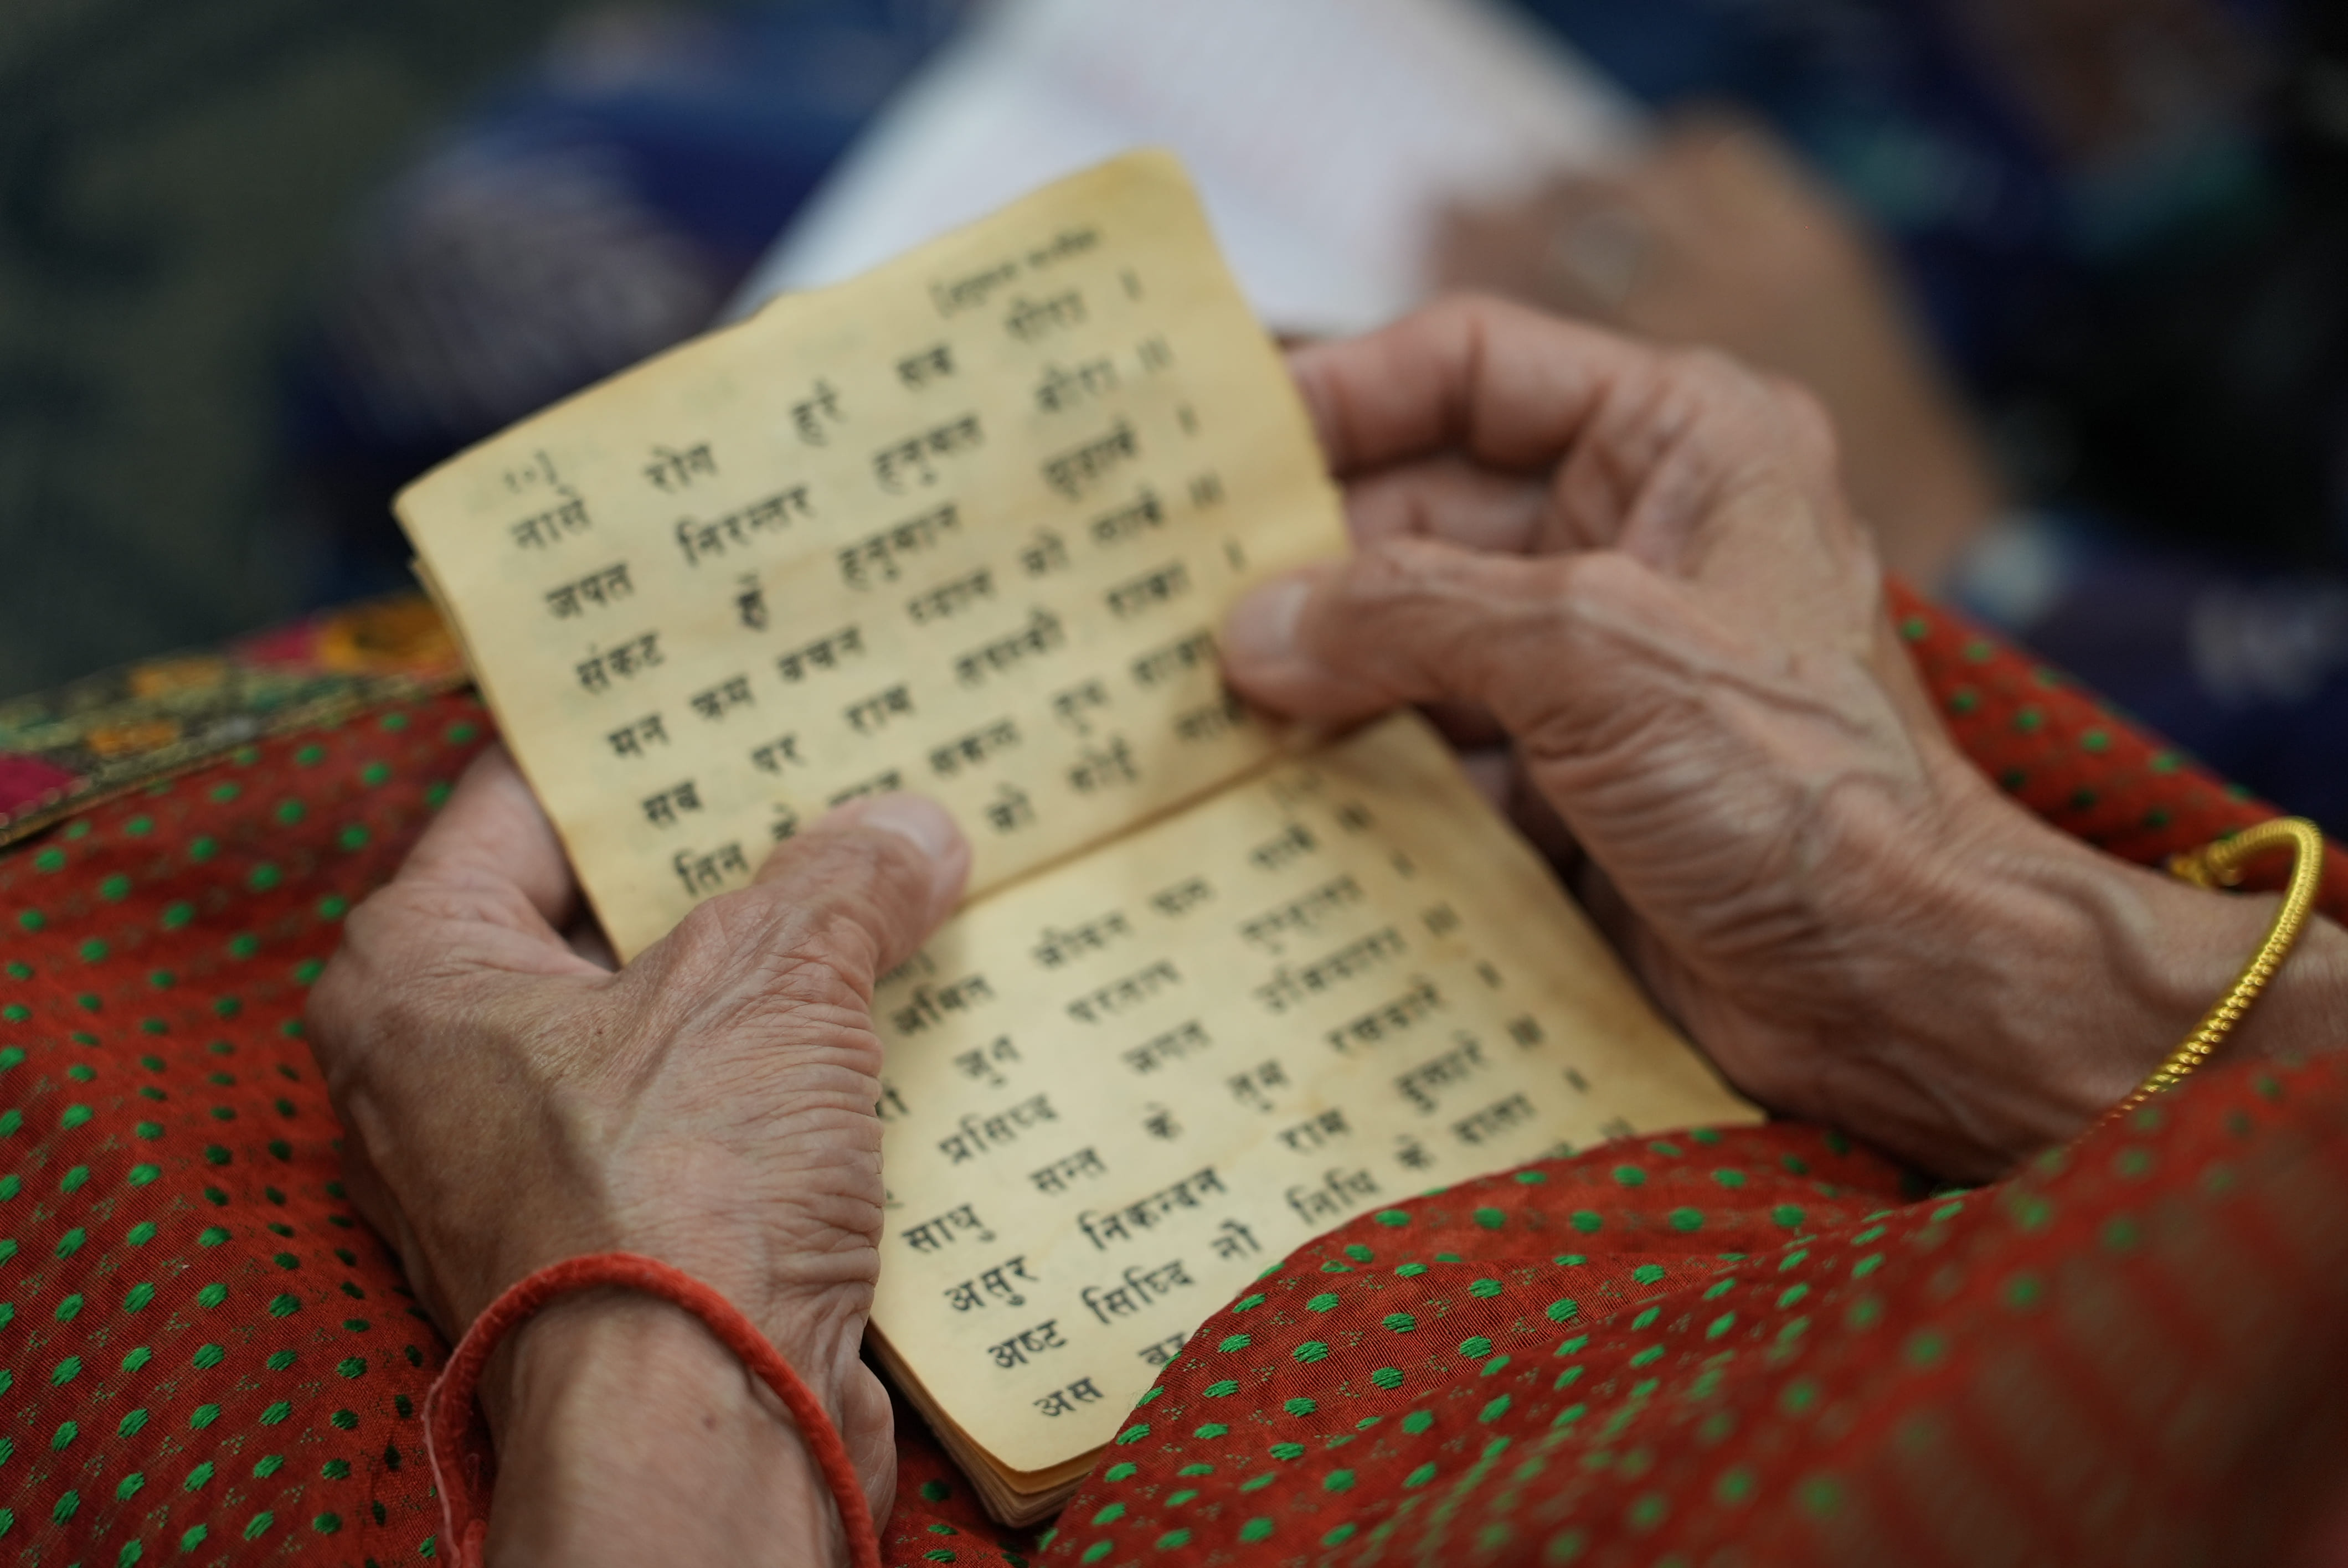 १०] [हनुमान चालीसा
नासे रोग हरे सब पीरा ।
जपत निरन्तर हनुमत बीरा ॥
संकट से हनुमान छुड़ावे ।
मन क्रम बचन ध्यान जो लावे ॥
सब पर राम तपस्वी राजा ।
तिन के सकल तुम साजा
जो कोई लावे
अमित जीवन फल पावे ॥
जुग परताप तुम्हारा ।
प्रसिध्द जगत उजियारा ॥
साधु सन्त के तुम रखवारे ।
असुर निकन्दन राम दुलारे ॥
अष्ट सिध्दि नौ निधि के दाता ।
अस बर